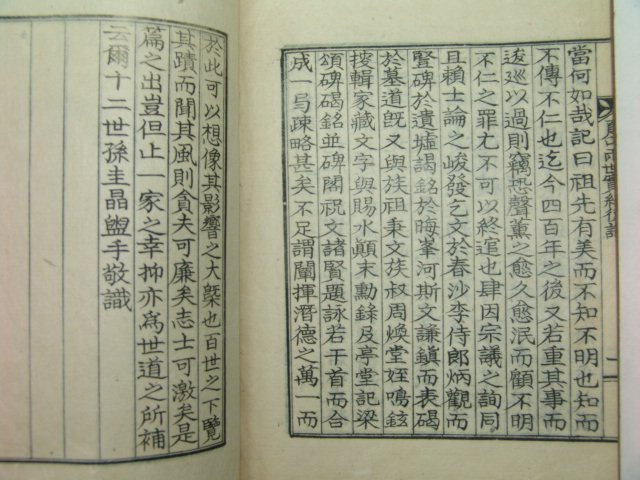 當何如哉記曰祖先有美而不知不明也知而
不傳不仁也迄今四百年之後又若重其事而
逡巡以過則竊恐聲薰之愈久愈泯而顧不明
不仁之罪尤不可以終逭也肆因宗議之詢同
且賴士論之峻發乞文於春沙李侍郎炳觀而
竪碑於遺墟謁銘於晦峯河斯文謙鎮而表碣
於墓道旣又與族祖秉文族叔周煥堂姪鳴鉉
按輯家藏文字與賜水顚末勳錄及亭堂記梁
頌碑碣銘並碑閣祝文諸賢題詠若干首而合
成一弓疎略甚矣不足謂闡揮潛德之萬一而
於此可以想像其影響之大槩也百世之下覽
其蹟而聞其風則貪夫可廉矣志士可激矣是
篇之出豈但止一家之幸抑亦爲世道之所補
云爾十二世孫圭晶盥手敬識